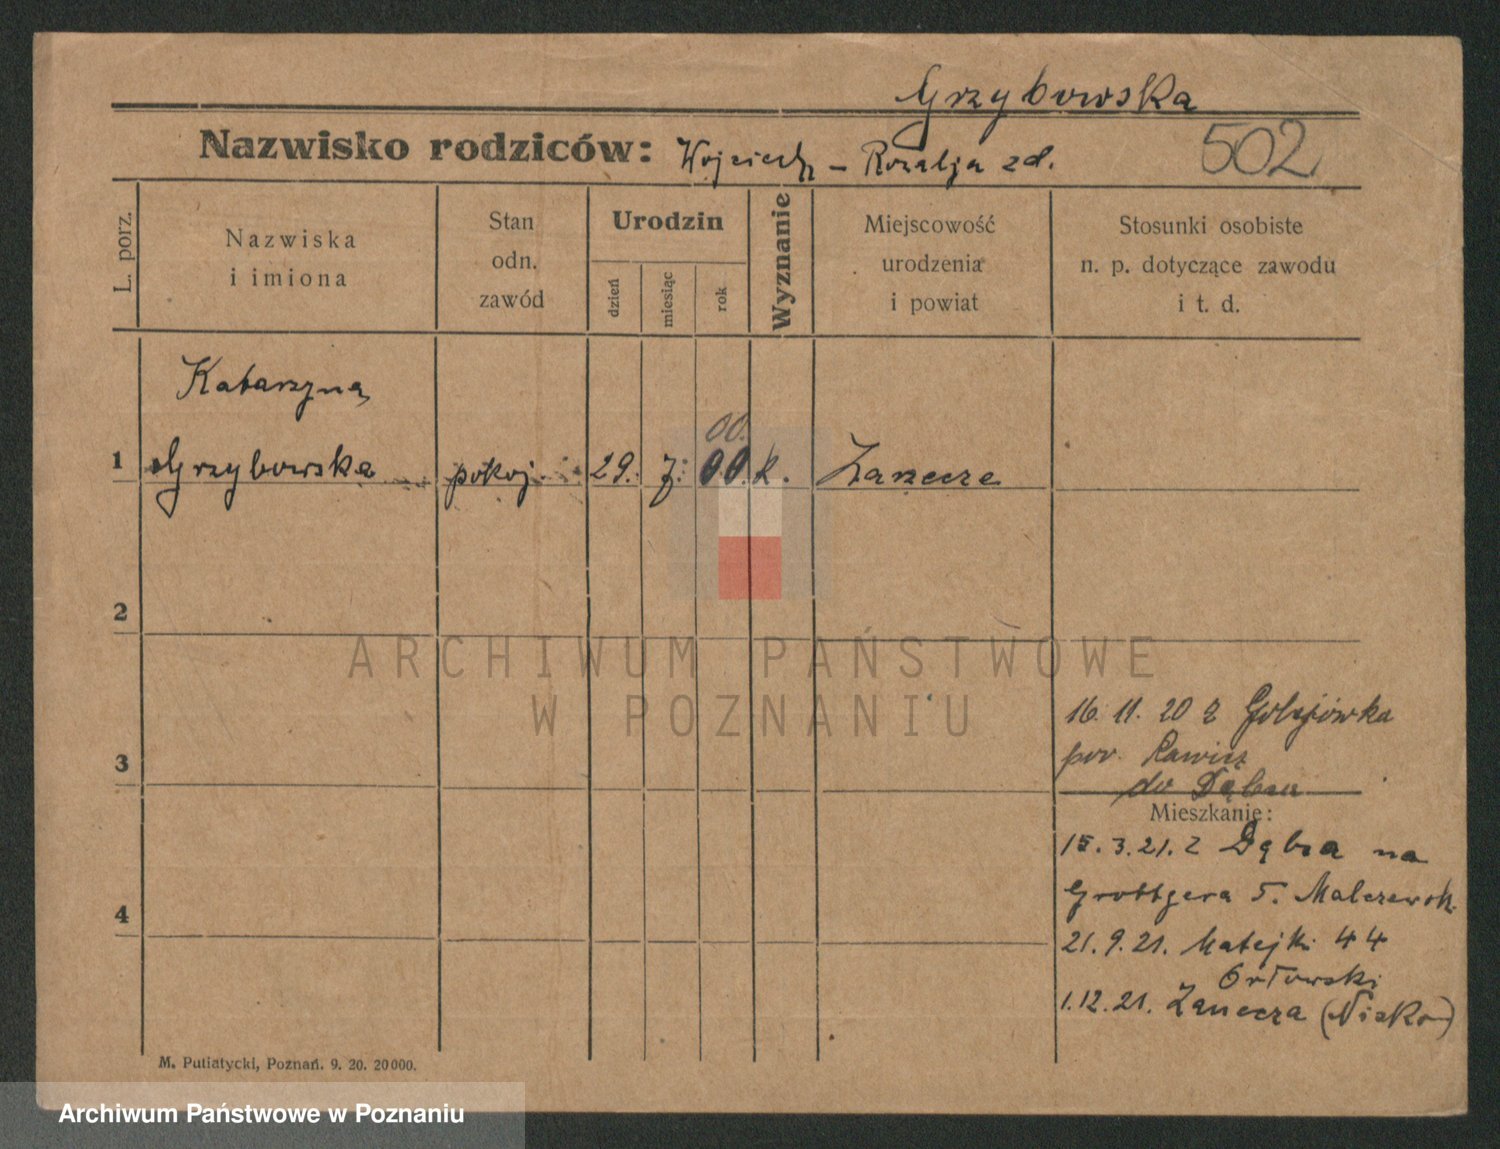 Grzybowska
Nazwisko rodziców: Wojciech – Rozalja zd.
502
L. porz.
Nazwiska
i imiona
Stan
odn.
zawód
Urodzin
dzień
miesiąc
rok
Wyznanie
Miejscowość
urodzenia
i powiat
Stosunki osobiste
n. p. dotyczące zawodu
i t. d.
Katarzyna
00.
1 Grzybowska pokoj. 29. 7. 00. k. Zarzecze
2
ARCHIWUM PAŃSTWOWE
W POZNANIU
3
16. 11. 20 z
pow. Rawicz
do Dębca
Mieszkanie:
15. 3. 21. z Dębca na
Grottgera 5. Malczewsk.
4
21. 9. 21. Matejki 44
Orłowski
1.12.21. Zarzecza (Nisko)
M. Putiatycki, Poznań. 9. 20. 20000.
Archiwum Państwowe w Poznaniu